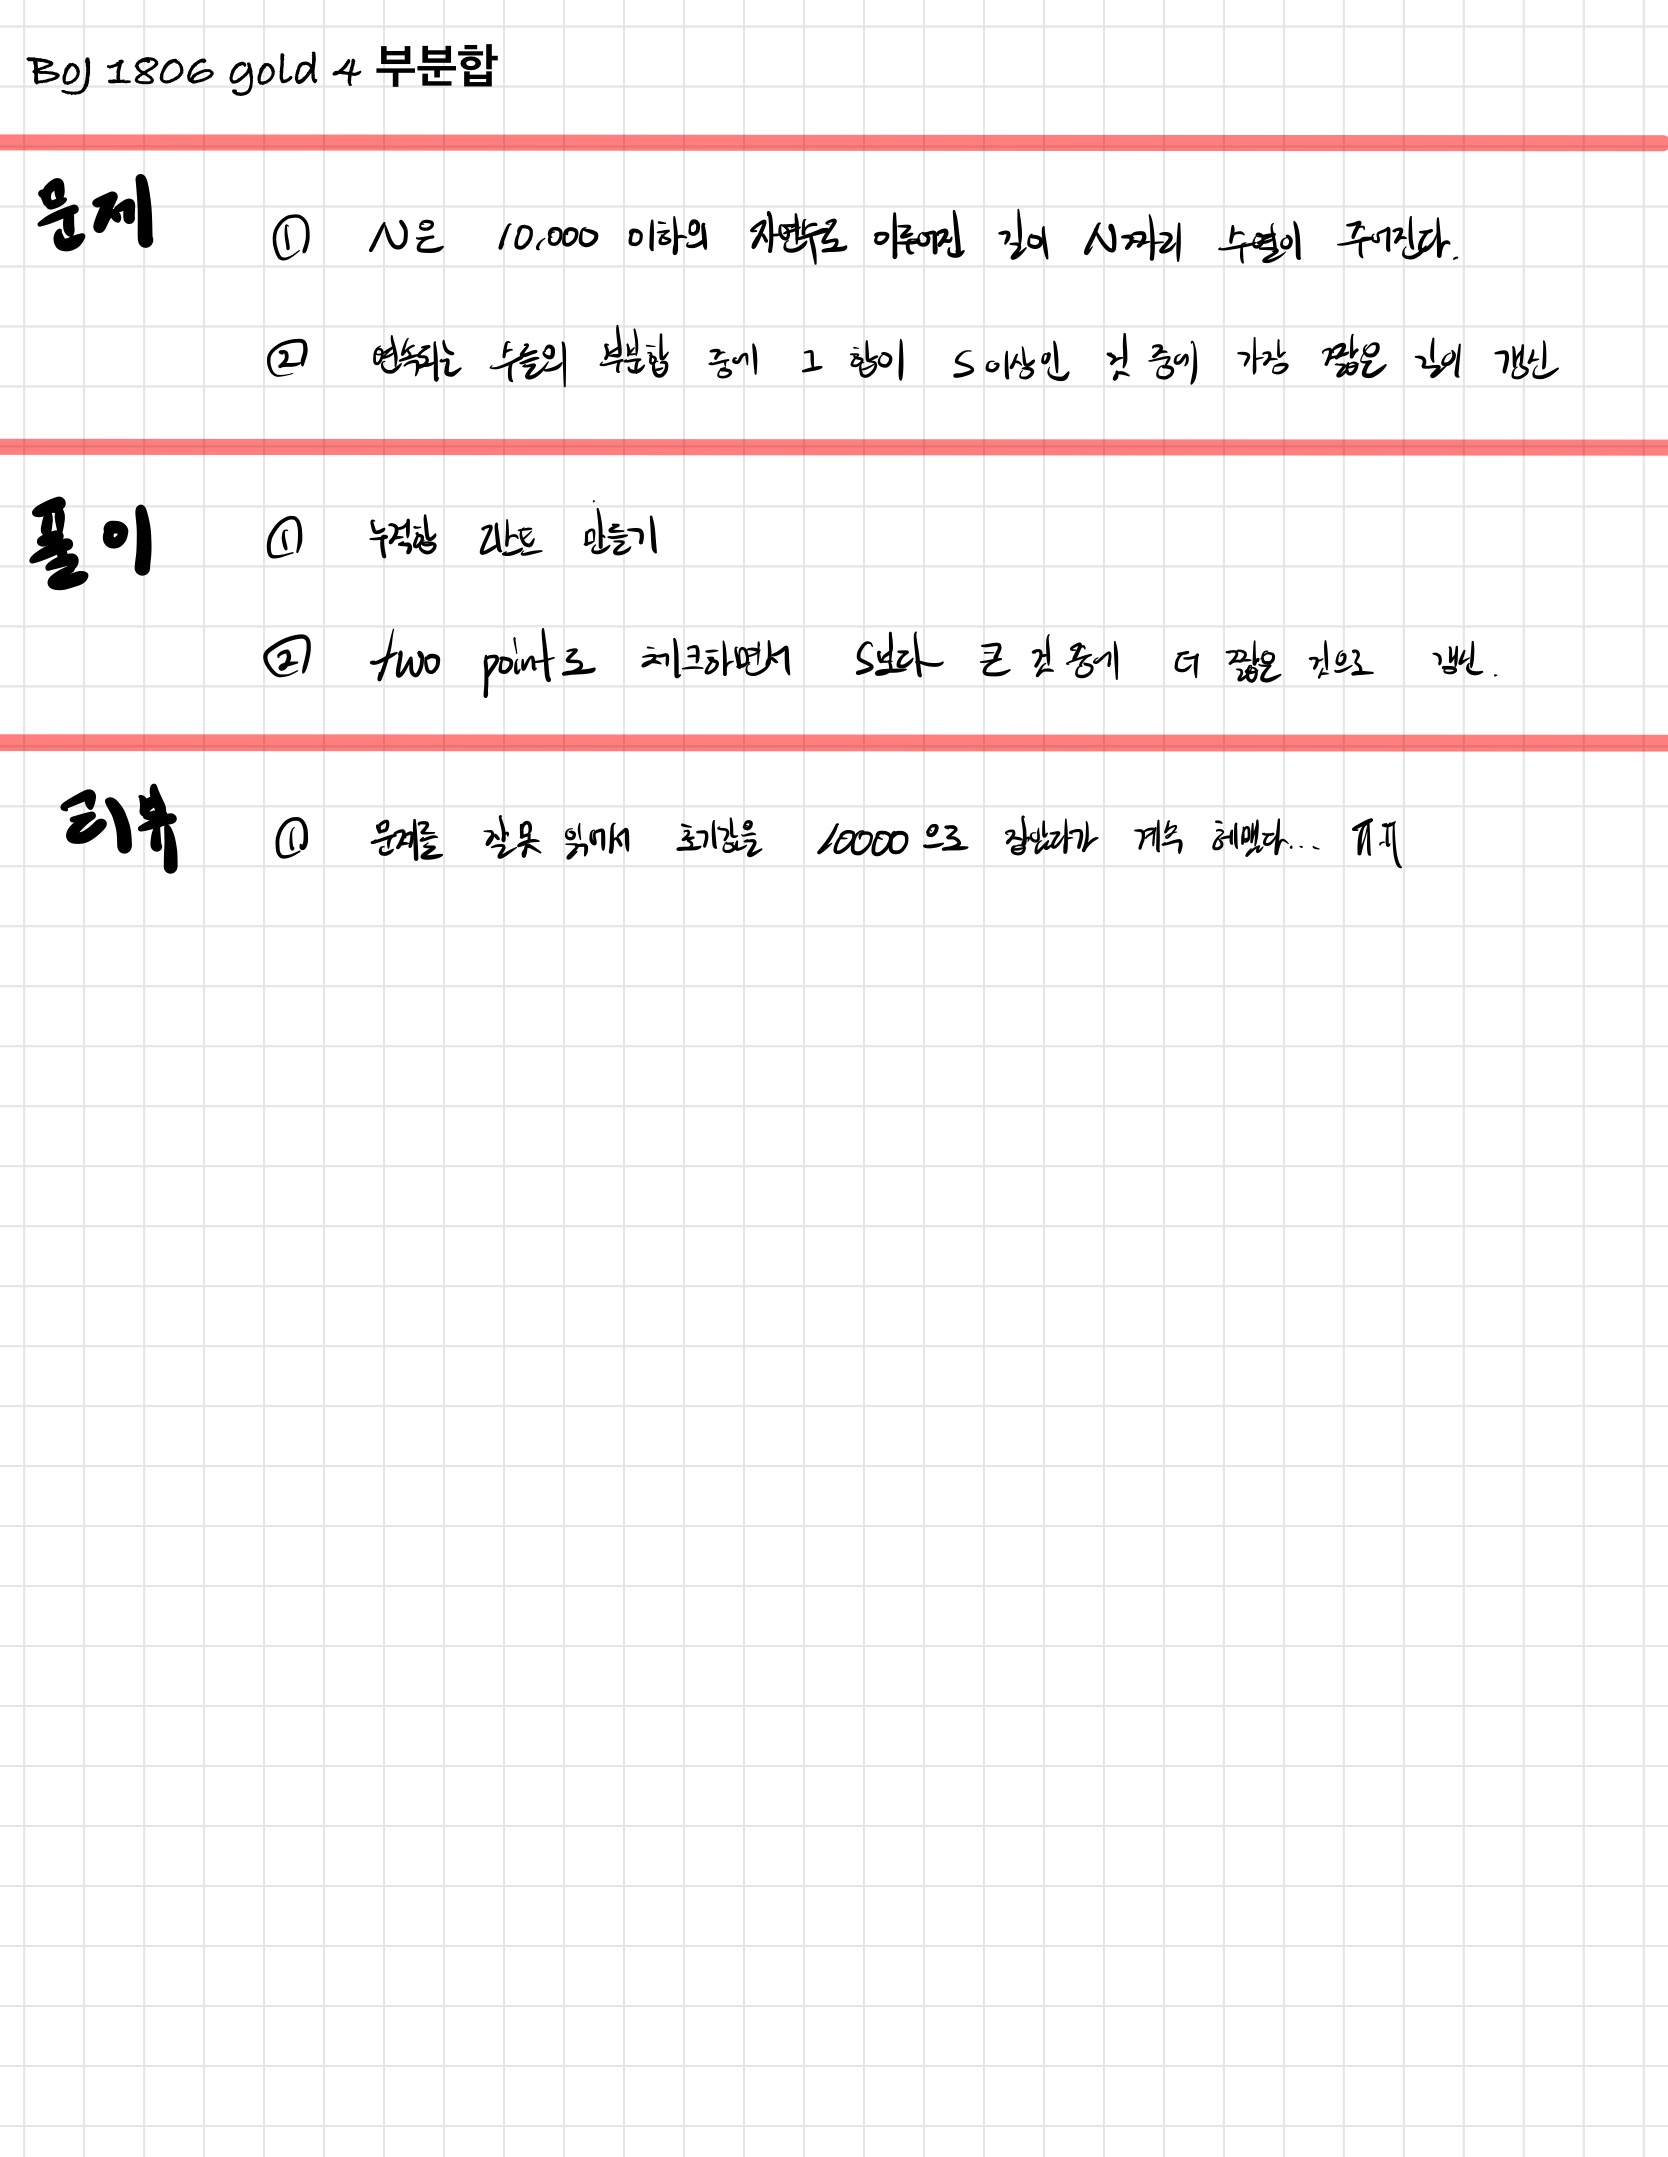 BOJ 1806 gold 4 부분합
문제 ① N은 10,000 이하의 자연수로 이루어진 길이 N짜리 수열이 주어진다.
② 연속되는 수들의 부분합 중에 그 합이 S이상인 것 중에 가장 짧은 길이 갱신
풀이 ① 누적합 리스트 만들기
② two point로 체크하면서 S보다 큰 것 중에 더 짧은 것으로 갱신.
리뷰 ① 문제를 잘못 읽어서 초기값을 10000으로 잡았다가 계속 헤맸다... ㅠㅠ